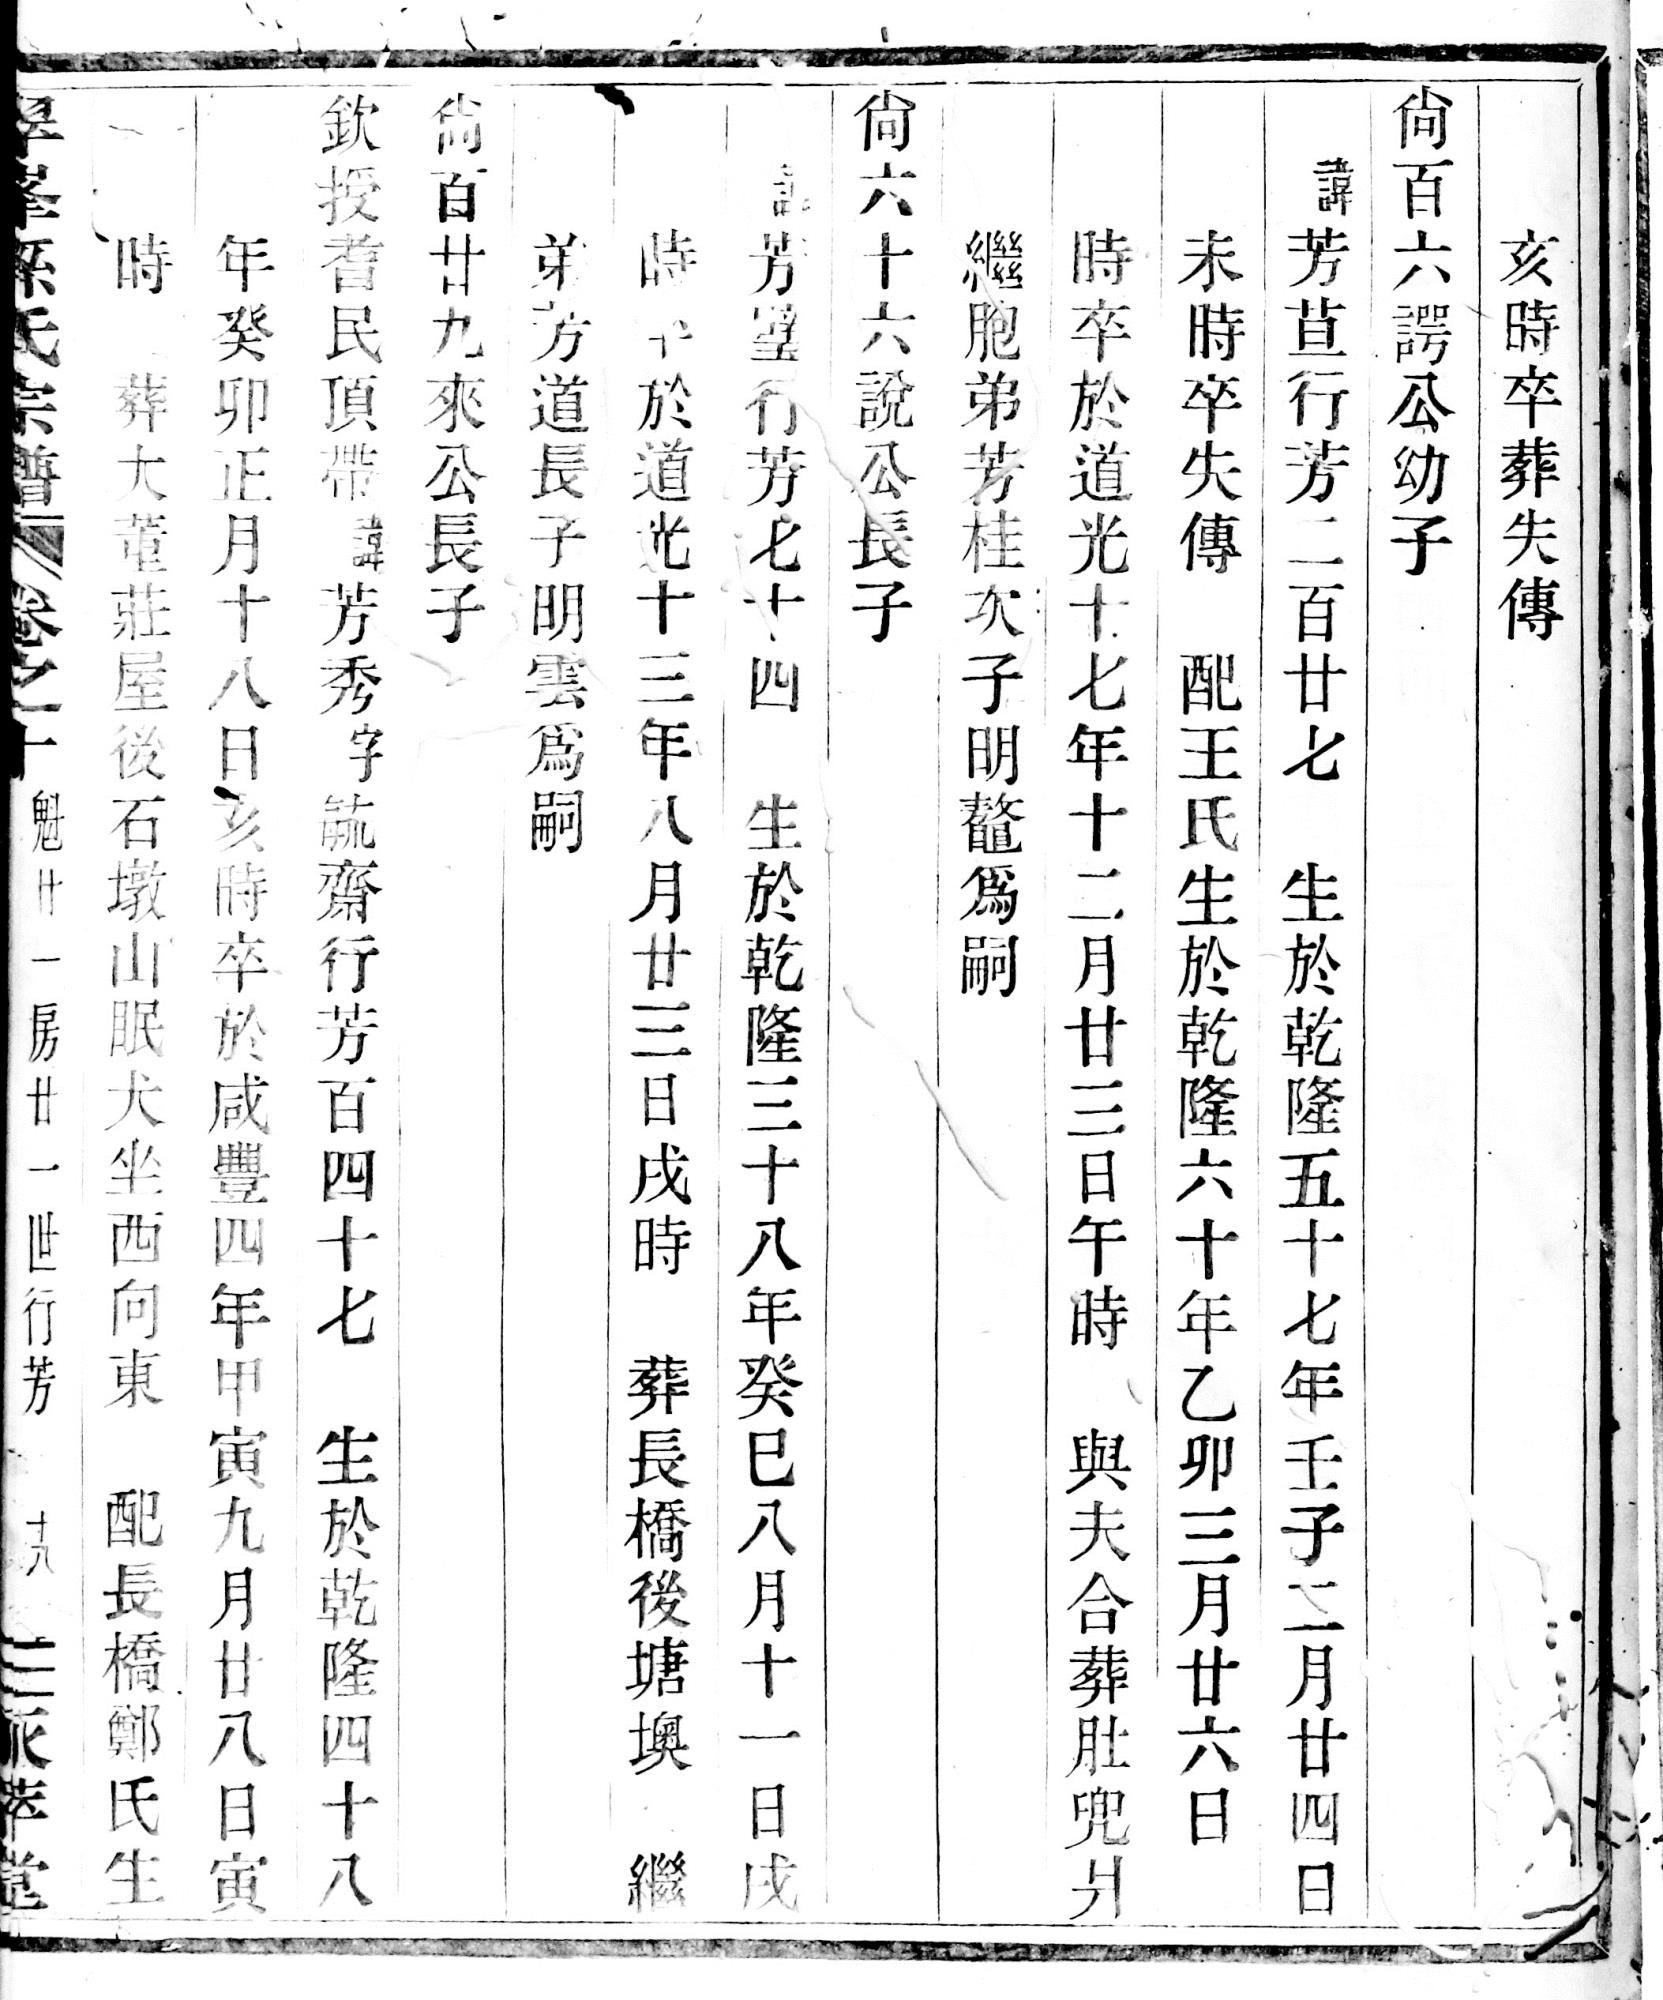 亥時卒葬失傳
尙百六諤公幼子
諱芳苴行芳二百廿七　生於乾隆五十七年壬子二月廿四日
未時卒失傳　配王氏生於乾隆六十年乙卯三月廿六日
時卒於道光十七年十二月廿三日午時　與夫合葬肚兜爿
繼胞弟芳桂次子明鼇爲嗣
尙六十六說公長子
諱芳瑩行芳七十四　生於乾隆三十八年癸巳八月十一日戌
時卒於道光十三年八月廿三日戌時　葬長橋後塘墺　繼
弟芳道長子明雲爲嗣
尙百廿九來公長子
欽授耆民頂帶諱芳秀字毓齋行芳百四十七　生於乾隆四十八
年癸卯正月十八日亥時卒於咸豐四年甲寅九月廿八日寅
時　葬大董莊屋後石墩山眠犬坐西向東　配長橋鄭氏生
峯孫氏宗譜　卷之十　魁廿一房廿一世行芳　十九　萃堂